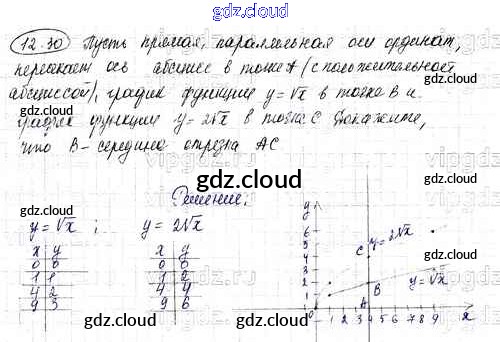 gdz.cloud
12.30 Пусть прямая, параллельная оси ординат,
пересекает ось абсцисс в точке A (с положительной
абсциссой), график функции y=√x в точке B и
график функции y=2√x в точке C. Докажите,
что B - середина отрезка AC
gdz.cloud
gdz.cloud
gdz.cloud
Решение:
y=√x ; y=2√x
x y x y
0 0 0 0
1 1 1 2
4 2 4 4
9 3 9 6
gdz.cloud
gdz.cloud
y
6
5
4 C y=2√x
3
2 B y=√x
1
0 1 2 3 A 4 5 6 7 8 9 x
gdz.cloud
gdz.cloud